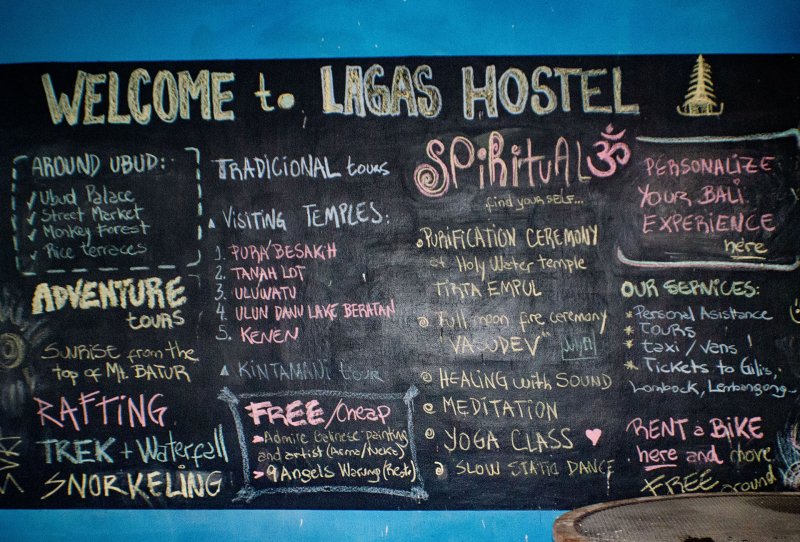 WELCOME to LAGAS HOSTEL
AROUND UBUD:
Ubud Palace
Street Market
Monkey Forest
Rice terraces
ADVENTURE
tours
SUNRISE from the
top of Mt. BATUR
RAFTING
TREK + Waterfall
SNORKELING
TRADICIONAL tours
VISITING TEMPLES:
1. PURA BESAKH
2. TANAH LOT
3. ULUWATU
4. ULUN DANU LAKE BERATAN
5. KENEN
KINTAMANI tour
FREE/Cheap
Admire balinese painting
and artist (Arma/Neka)
9 Angels Warung (Resto)
SPIRITUAL ॐ
find yourself...
PURIFICATION CEREMONY
at Holy Water temple
TIRTA EMPUL
Full moon fire ceremony
VASUDEV"
HEALING with SOUND
MEDITATION
YOGA CLASS
SLOW STATIC DANCE
PERSONALIZE
YOUR BALI
EXPERIENCE
here
OUR SERVICES:
* Personal Asistance
* TOURS
* taxi / Vans !
* Tickets to Gilis,
Lombock, Lembongong
RENT a BiKE
here and move
FREE around